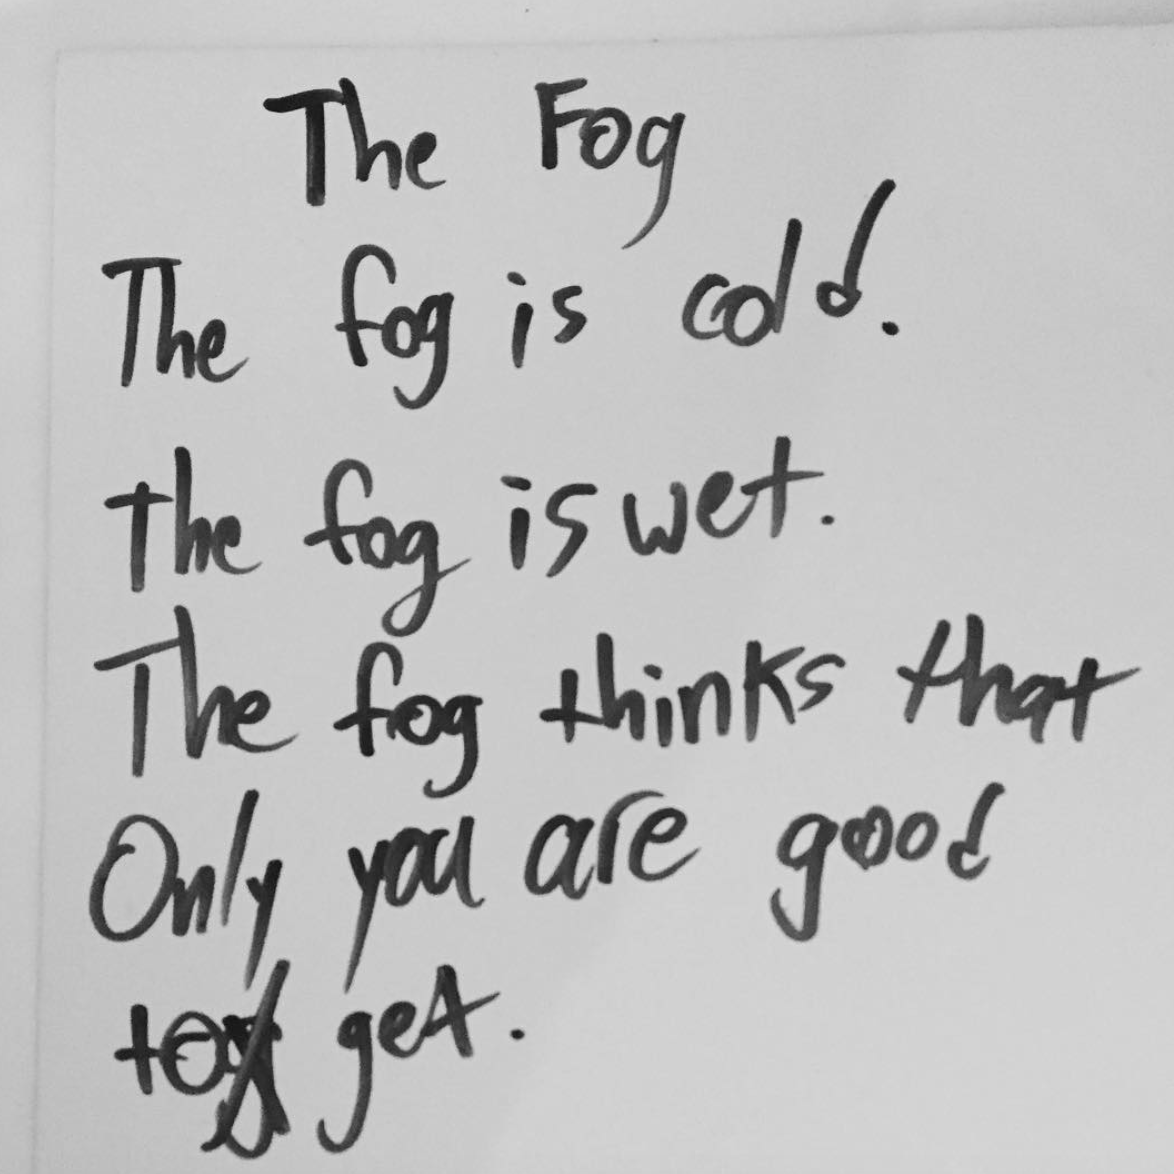 The Fog
The fog is cold.
the fog is wet.
The fog thinks that
Only you are good
to get.